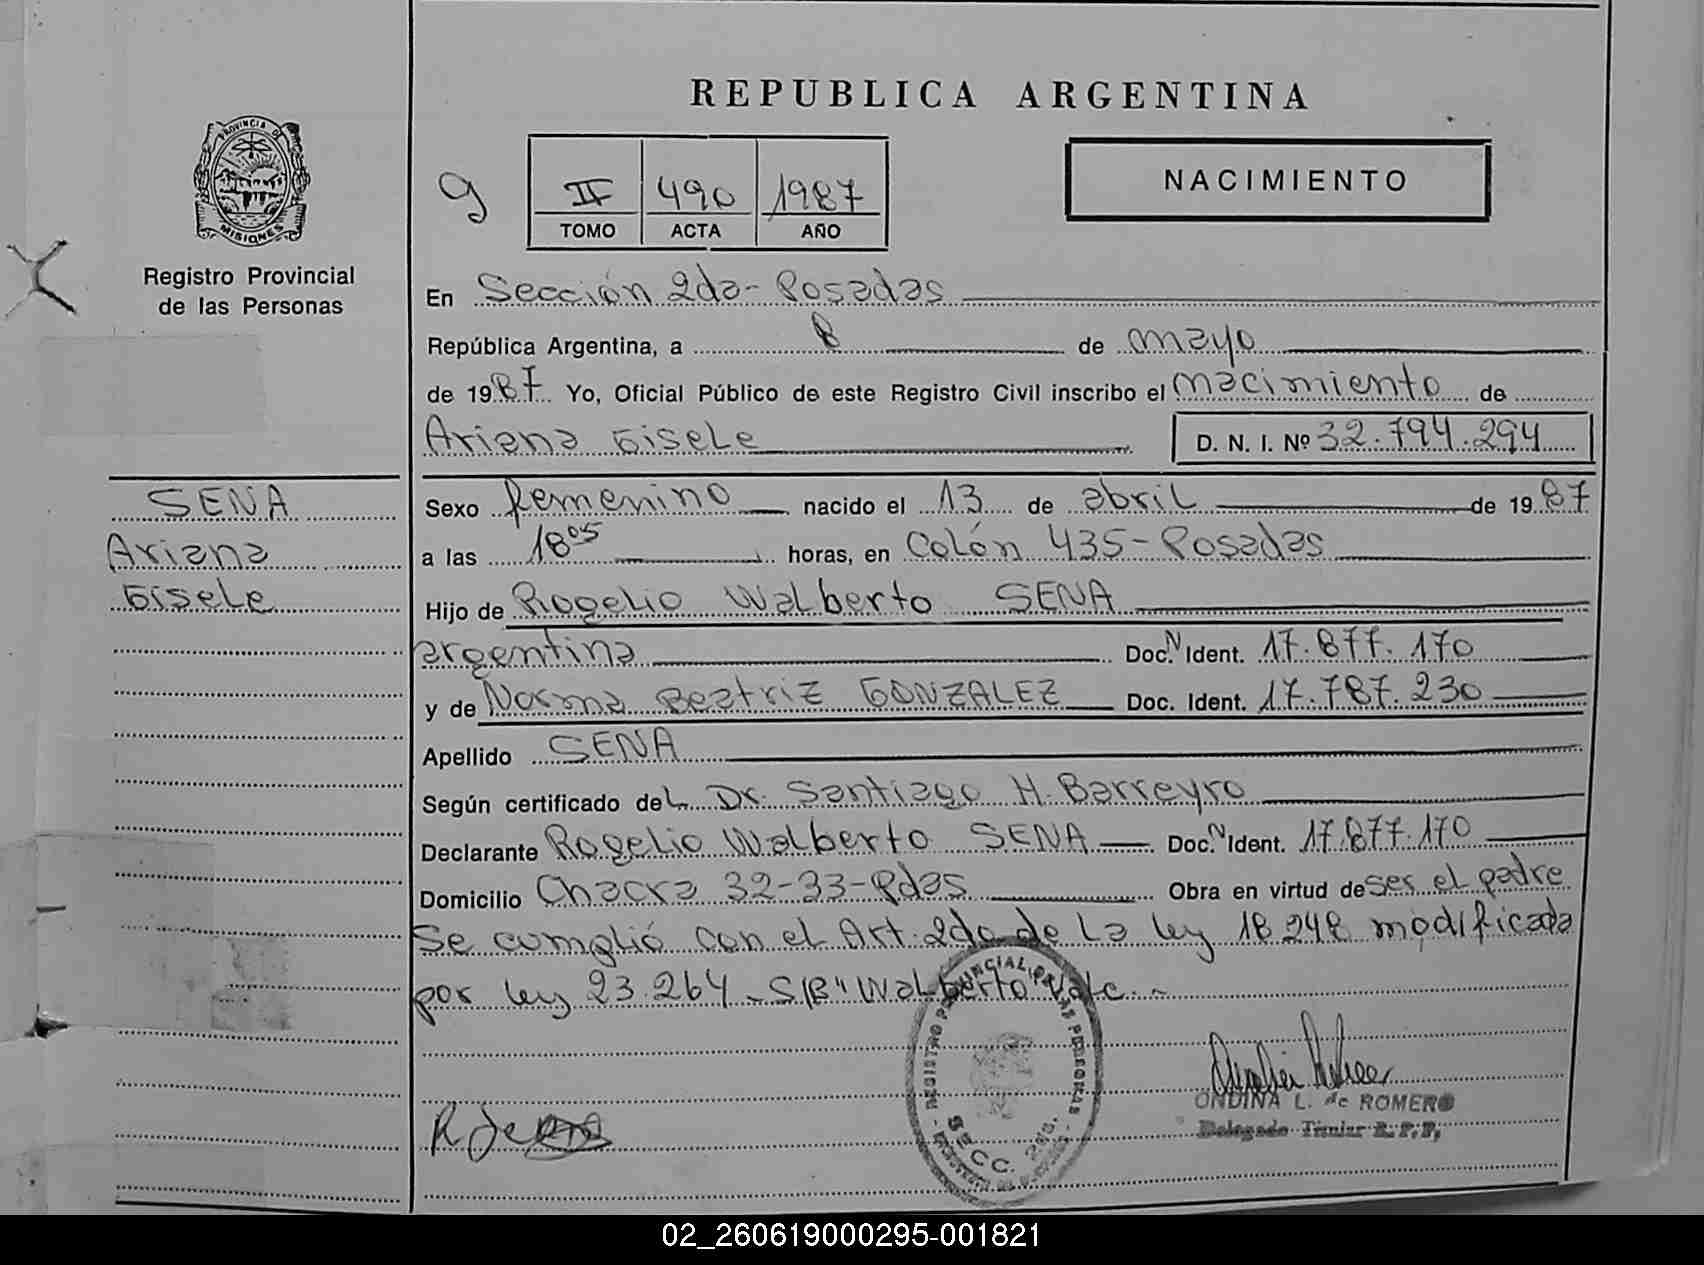 REPUBLICA ARGENTINA
PROVINCIA DE
MISIONES
Registro Provincial
de las Personas
9
II 490 1987
TOMO ACTA AÑO
NACIMIENTO
En Sección 2da- Posadas
República Argentina, a 8 de mayo
de 1987 Yo, Oficial Público de este Registro Civil inscribo el nacimiento de
Ariana Gisele D. N. I. Nº 32.794.294
SENA
Ariana
Gisele
Sexo femenino nacido el 13 de abril de 1987
a las 18 05 horas, en Colón 435-Posadas
Hijo de Rogelio Walberto SENA
argentina Doc. N Ident. 17.877.170
y de Norma Beatriz GONZALEZ Doc. Ident. 17.787.230
Apellido SENA
Según certificado del Dr. Santiago H. Barreyro
Declarante Rogelio Walberto SENA Doc. N Ident. 17.877.170
Domicilio Chacra 32-33-Pdas Obra en virtud de ser el padre
Se cumplió con el Art. 2do de la ley 18.248 modificada
por ley 23.264 - S/B "Walberto" Vale.-
REGISTRO PROVINCIAL DE LAS PERSONAS
SECC. 2da.
ONDINA L. de ROMERO
Delegado Titular R.P.P.
02_260619000295-001821